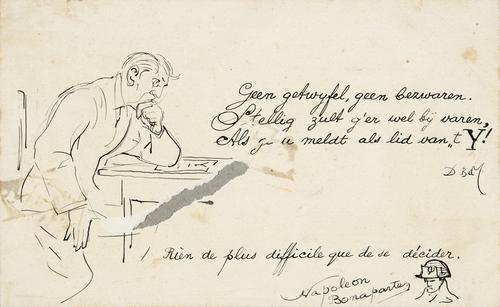 Geen getwyfel, geen bezwaren.
Stellig zult g'er wel bij varen,
Als g' u meldt als lid van „t Y!
Rien de plus difficile que de se décider.
Napoleon
Bonaparte